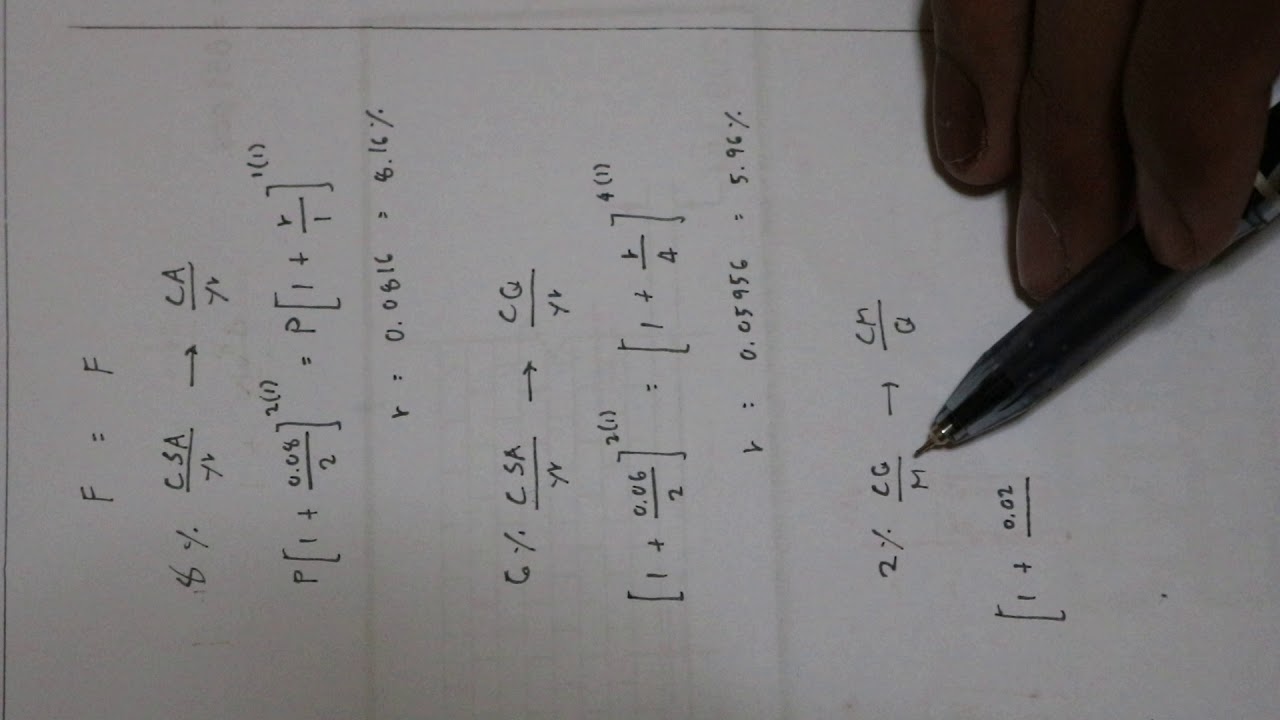 F = F
8% CSA/Yr → CA/Yr
P[1 + 0.08/2]^2(1) = P[1 + r/1]^1(1)
r = 0.0816 = 8.16%
6% CSA/Yr → CQ/Yr
[1 + 0.06/2]^2(1) = [1 + r/4]^4(1)
r = 0.05956 = 5.96%
2% CQ/M → CM/Q
[1 + 0.02/